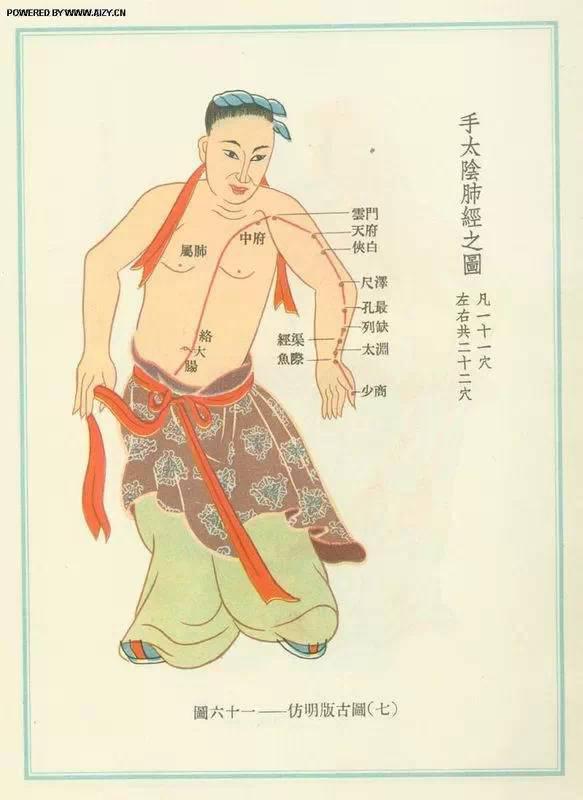 POWERED BY WWW.AIZY.CN
手太陰肺經之圖
凡一十一穴
左右共二十二穴
雲門
天府
俠白
中府
屬肺
尺澤
孔最
列缺
經渠
太淵
魚際
絡大腸
少商
圖六十一——仿明版古圖(七)